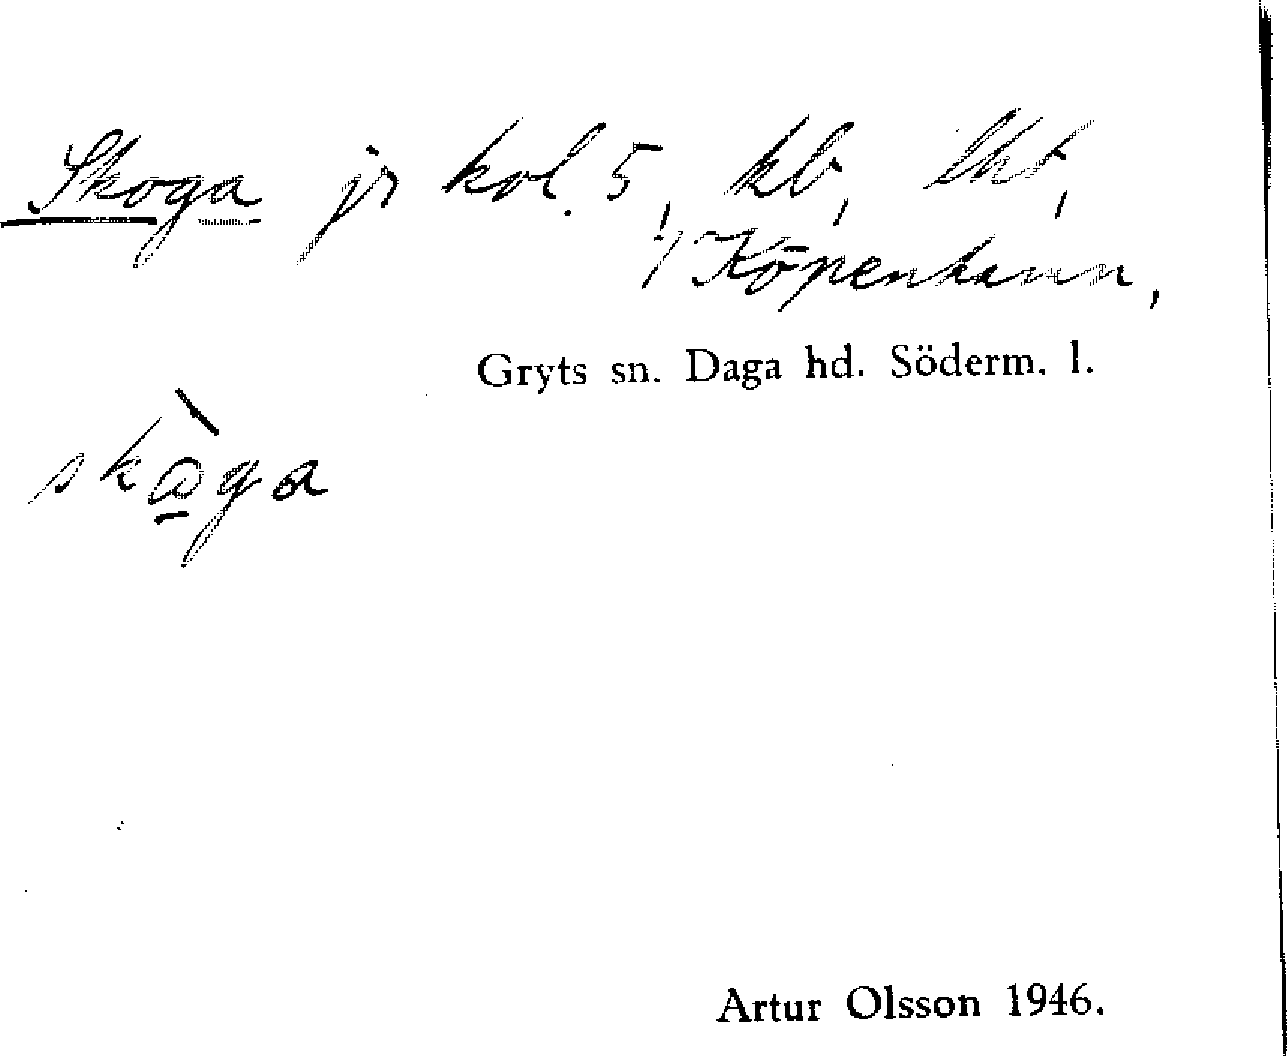 Skoga jr kol. 5, kb, lht,
1/ Köpenhamn,
Gryts sn. Daga hd. Söderm. l.
skòga
Artur Olsson 1946.